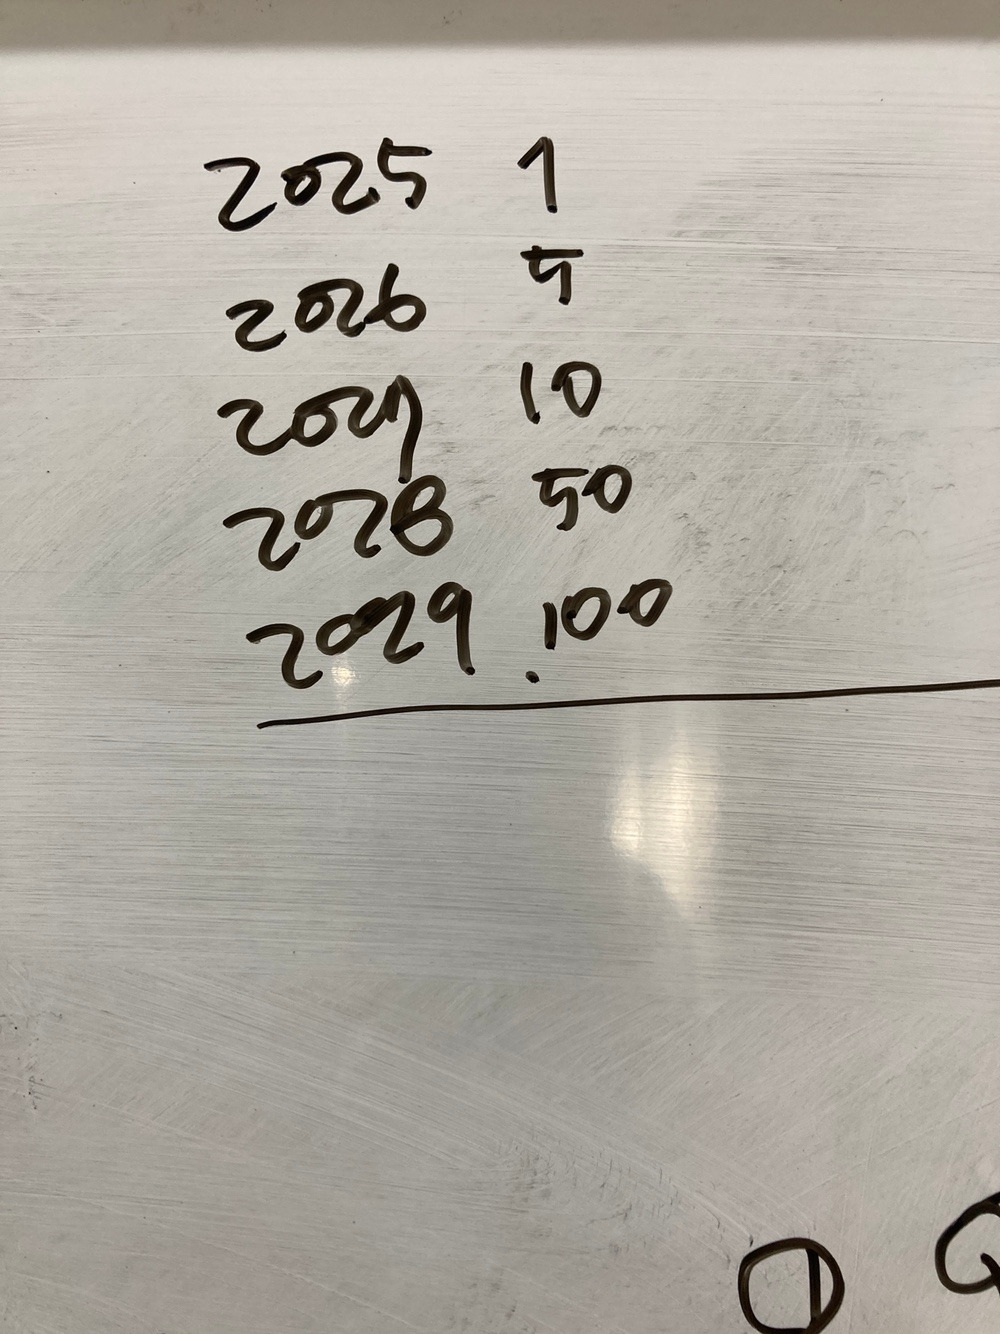 2025 1
2026 5
2027 10
2028 50
2029 100
①